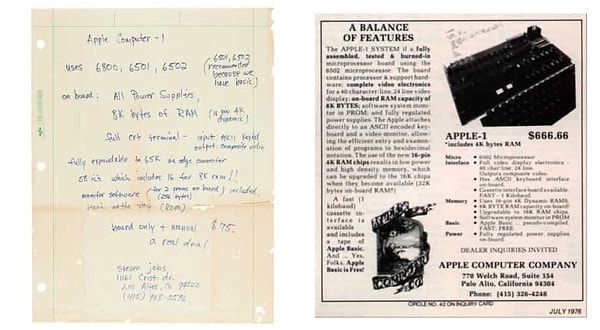 Apple Computer-1
uses 6800, 6501, 6502
(6501, 6502
recommended
because we
have basic)
on board: All Power Supplies,
8K bytes of RAM (16 pin 4K
dynamic)
full crt terminal - input: ASCII
output: composite video
fully expandable to 65K via edge connector
58 ic's which includes 16 for 8K ram!!
monitor software (for 2 proms on board) included.
(256 bytes)
(ROM)
board only + manual $75.
a real deal
steven jobs
11161 Crist dr.
Los Altos, Ca
(415)
A BALANCE
OF FEATURES
The APPLE-1 SYSTEM if a fully
assembled, tested & burned-in
microprocessor board using the
6502 microprocessor. The board
contains processor & support hard-
ware; complete video electronics
for a 40 character/line, 24 line video
display; on-board RAM capacity of
8K BYTES; software system monitor
in PROM; and fully regulated
power supplies. The Apple attaches
directly to an ASCII encoded key-
board and a video monitor, allowing
the efficient entry and examina-
tion of programs in hexadecimal
notation. The use of the new 16-pin
4K RAM chips results in low power
and high density memory, which
can be upgraded to the 16K chips
when they become available (32K
bytes on-board RAM!!)
A fast (1
kilobaud)
cassette in-
terface is
available
and includes
a tape of
Apple Basic.
And ... Yes,
Folks, Apple
Basic is Free!
APPLE-1 $666.66
*includes 4K bytes RAM
Micro • 6502 Microprocessor
Interface • Full video display electronics -
40 char/line, 24 line.
Outputs composite video.
• Has ASCII keyboard interface
on-board.
• Cassette interface board available.
FAST - 1 Kilobaud.
Memory • Uses 16-pin 4K Dynamic RAMS.
• 8K BYTE RAM capacity on-board!
• Upgradable to 16K RAM chips.
• Software system monitor in PROM
Basic • Apple Basic ... pseudo-compiled,
FAST, FREE.
Power • Fully regulated power supplies
on-board.
DEALER INQUIRIES INVITED
APPLE COMPUTER COMPANY
770 Welch Road, Suite 154
Palo Alto, California 94304
Phone: (415) 326-4248
CIRCLE NO. 42 ON INQUIRY CARD
JULY 1976